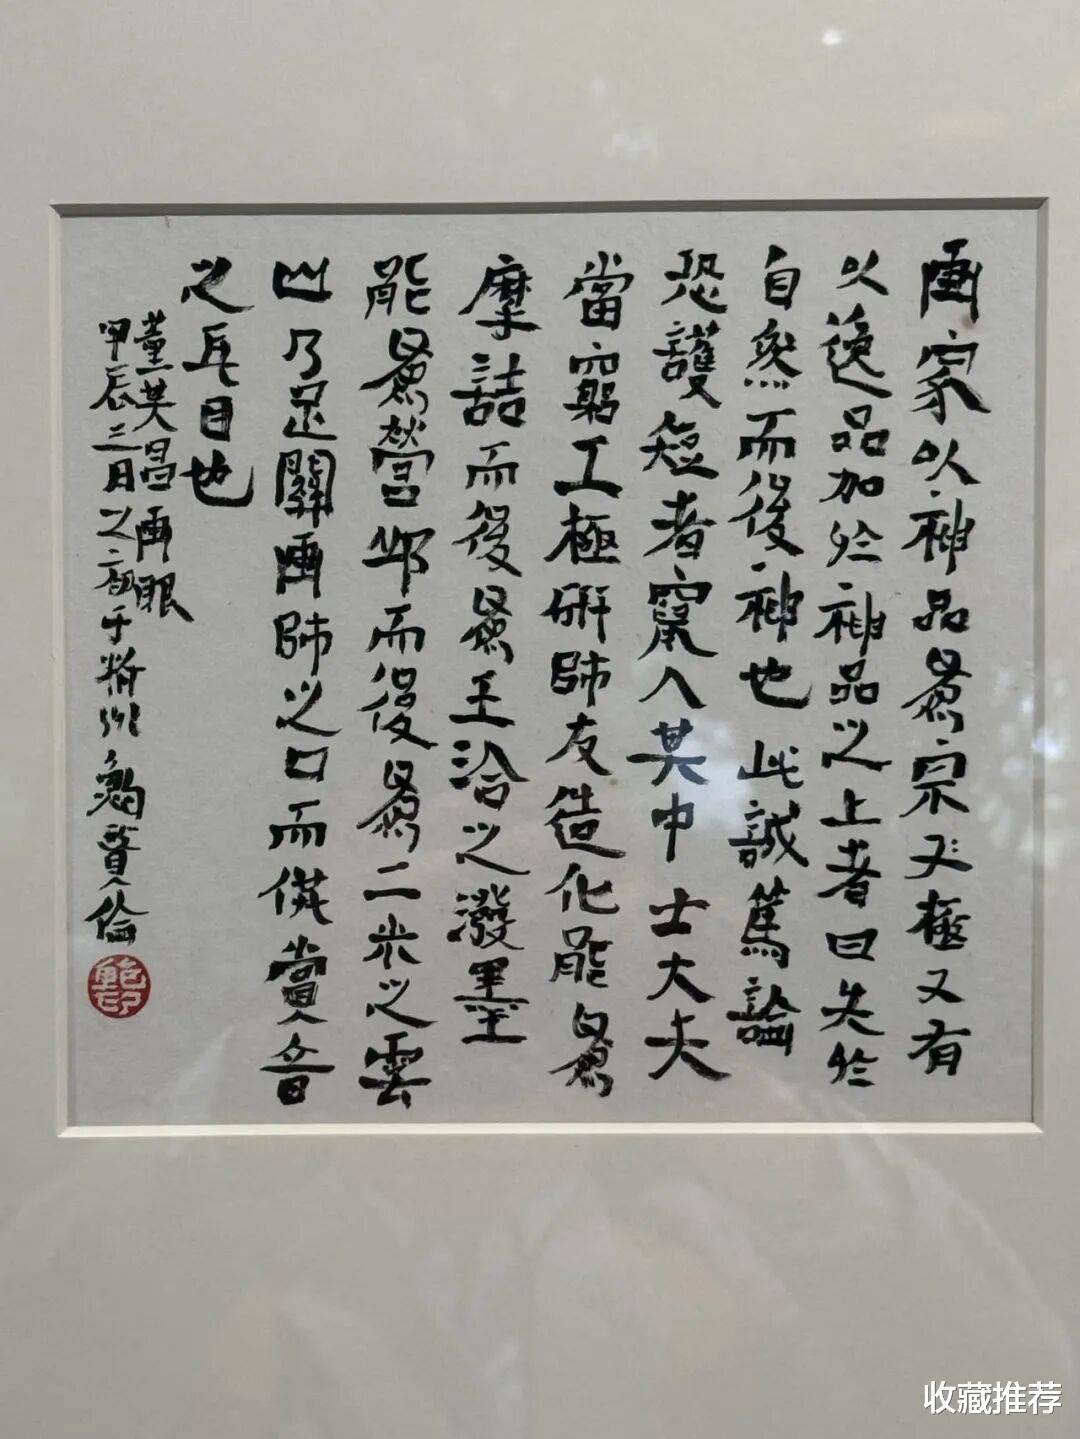 画家以神品為宗極又有
以逸品加於神品之上者曰失於
自然而後神也此誠篤論
恐護短者竄入其中士大夫
當窮工極研師友造化能為
摩詰而後為王洽之潑墨
能為營邱而後為二米之雲
山乃足關画師之口而供賞音
之耳目也
董其昌画眼
甲辰三月之初于 賢倫
收藏推荐